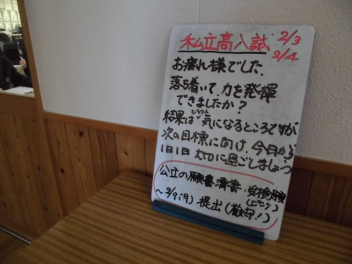 私立高入試 2/3
2/4
お疲れ様でした。
落ち着いて、力を発揮
できましたか？
結果は気になるところですが
次の目標に向け、今日から
1日1日 大切に過ごしましょう
公立の願書清書・受検
～2/9(月) 提出(厳守！)